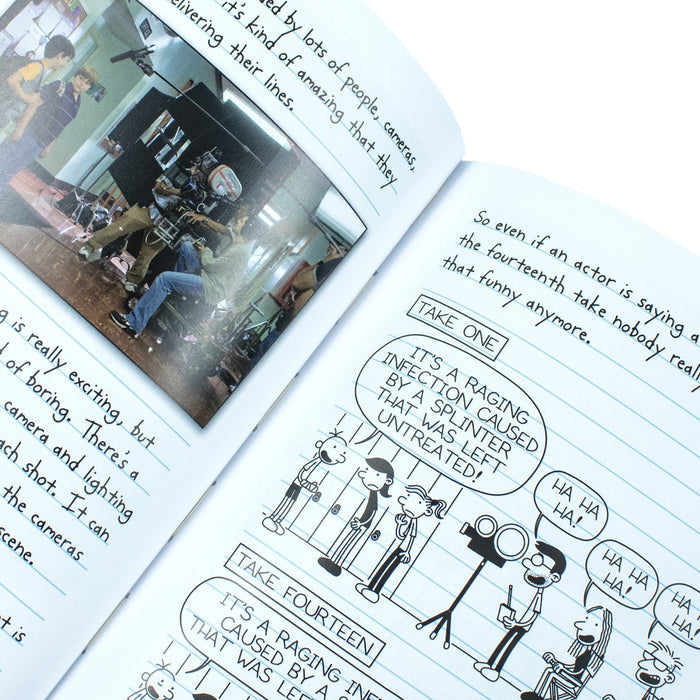 ded by lots of people, cameras,
it's kind of amazing that they
delivering their lines.
ng is really exciting, but
d of boring. There's a
camera and lighting
ach shot. It can
the cameras
scene.
t is
So even if an actor is saying a
the fourteenth take nobody reall
that funny anymore.
TAKE ONE
IT'S A RAGING
INFECTION CAUSED
BY A SPLINTER
THAT WAS LEFT
UNTREATED!
HA HA
HA!
HA HA
HA!
HA
HA!
TAKE FOURTEEN
IT'S A RAGING
CAUSED BY A
THAT WAS LEFT